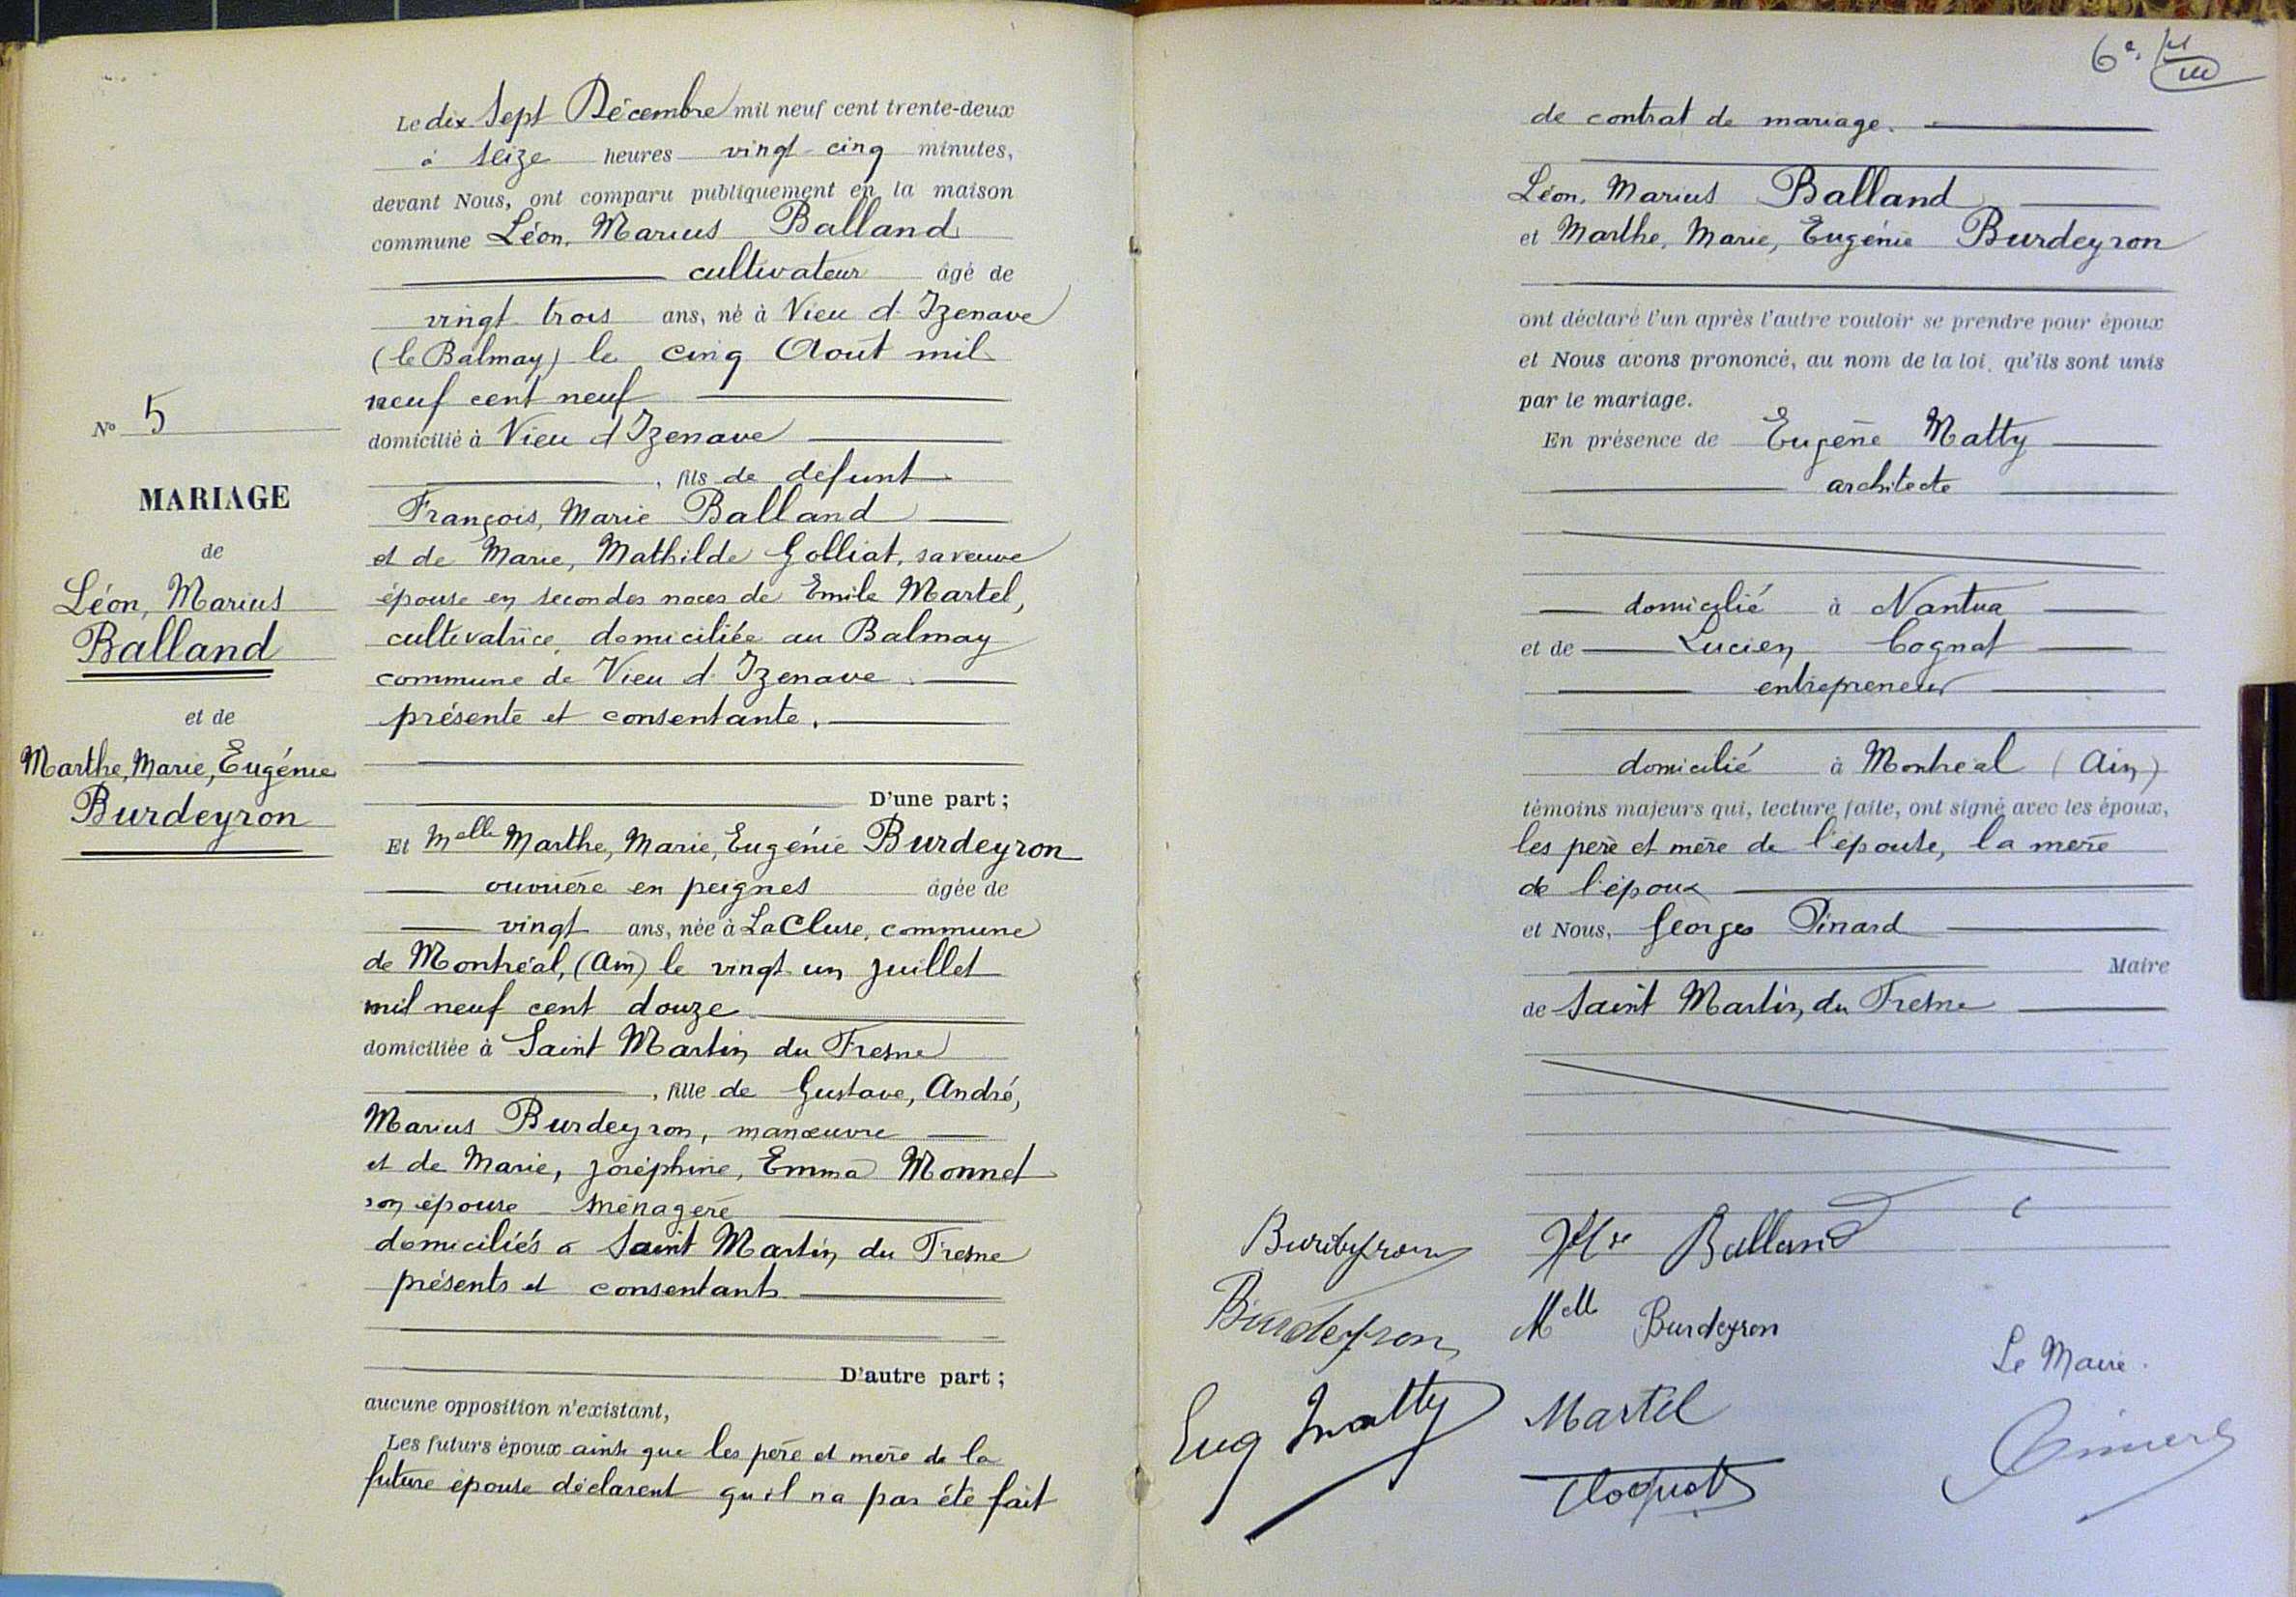 Le dix Sept Décembre mil neuf cent trente-deux
à seize heures vingt cinq minutes,
devant Nous, ont comparu publiquement en la maison
commune Léon, Marius Balland
cultivateur âgé de
vingt trois ans, né à Vieu d'Izenave
(le Balmay) le cinq Août mil
neuf cent neuf
domicilié à Vieu d'Izenave
, fils de défunt
François, Marie Balland
et de Marie, Mathilde Golliat, sa veuve
épouse en secondes noces de Emile Martel,
cultivatrice, domiciliée au Balmay
commune de Vieu d'Izenave.
présente et consentante.
D'une part ;
Et Melle Marthe, Marie, Eugénie Burdeyron
ouvrière en peignes âgée de
vingt ans, née à La Cluse, commune
de Montréal, (Ain) le vingt un juillet
mil neuf cent douze
domiciliée à Saint Martin du Fresne
, fille de Gustave, André,
Marius Burdeyron, manœuvre
et de Marie, Joséphine, Emma Monnet
son épouse ménagère
domiciliés à Saint Martin du Fresne
présents et consentants
D'autre part ;
aucune opposition n'existant,
Les futurs époux ainsi que les père et mère de la
future épouse déclarent qu'il n'a pas été fait
N° 5
MARIAGE
de
Léon, Marius
Balland
et de
Marthe, Marie, Eugénie
Burdeyron
6e.
de contrat de mariage.
Léon, Marius Balland
et Marthe, Marie, Eugénie Burdeyron
ont déclaré l'un après l'autre vouloir se prendre pour époux
et Nous avons prononcé, au nom de la loi, qu'ils sont unis
par le mariage.
En présence de Eugène Matty
architecte
domicilié à Nantua
et de Lucien Cognat
entrepreneur
domicilié à Montréal (Ain)
témoins majeurs qui, lecture faite, ont signé avec les époux,
les père et mère de l'épouse, la mère
de l'époux
et Nous, Georges Pinard
Maire
de Saint Martin du Fresne
Burdeyron Balland
Burdeyron Melle Burdeyron
Le Maire.
Eug Matty Martel